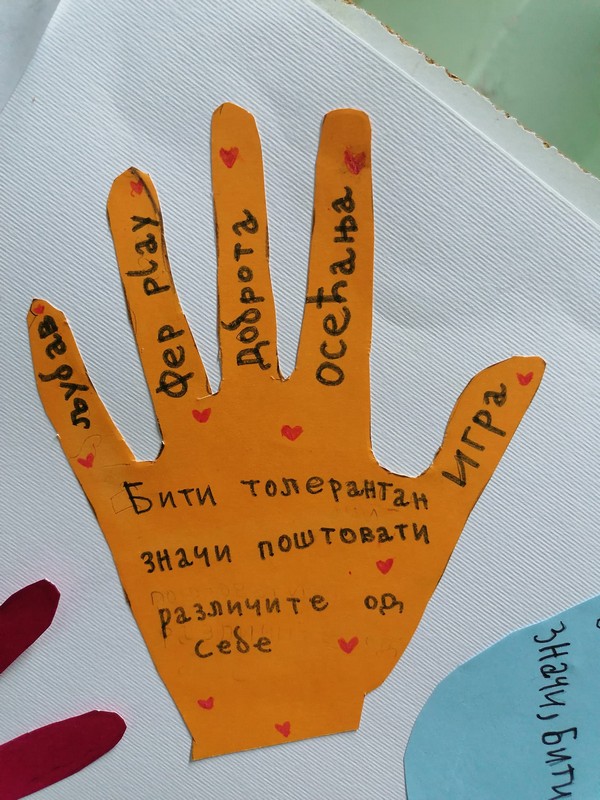 љубав
фер play
Доброта
осећања
игра
Бити толерантан
значи поштовати
различите од
себе
значи, бити